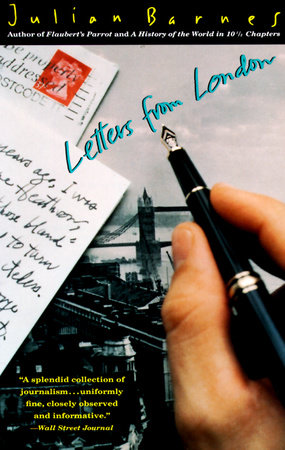 Julian Barnes
Author of Flaubert's Parrot and A History of the World in 10½ Chapters
Be properly
addressed
POSTCODE
Letters from London
years ago, I was
Heathrow,
those bland
to turn
telex.
"A splendid collection of
journalism...uniformly
fine, closely observed
and informative."
—Wall Street Journal